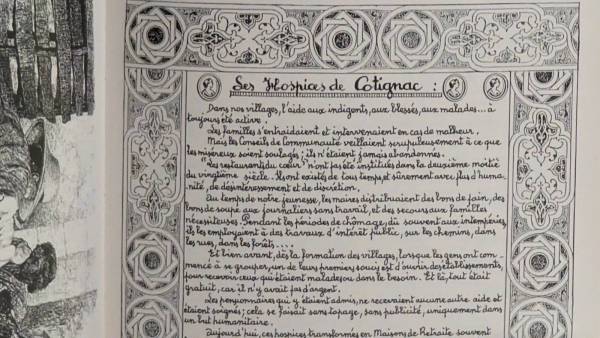 Les Hospices de Cotignac :
Dans nos villages, l'aide aux indigents, aux blessés, aux malades... a
toujours été active.
Les familles s'entraidaient et intervenaient en cas de malheur.
Mais les Conseils de Communauté veillaient scrupuleusement à ce que
les miséreux soient soulagés ; ils n'étaient jamais abandonnés.
"Les restaurants du cœur" n'ont pas été institués dans la deuxième moitié
du vingtième siècle. Ils ont existés de tous temps et sûrement avec plus d'huma-
nité, de désintéressement et de discrétion.
Au temps de notre jeunesse, les maires distribuaient des bons de pain, des
bons de soupe aux journaliers sans travail, et des secours aux familles
nécessiteuses. Pendant les périodes de chômage, dû souvent aux intempéries,
ils les employaient à des travaux d'intérêt public, sur les chemins, dans
les rues, dans les forêts....
Et bien avant, dès la formation des villages, lorsque les gens ont com-
mencé à se grouper, un de leurs premiers soucis est d'ouvrir des établissements,
pour recevoir ceux qui étaient malades ou dans le besoin. Et là, tout était
gratuit, car il n'y avait pas d'argent.
Les pensionnaires qui y étaient admis, ne recevaient aucune autre aide et
étaient soignés ; cela se faisait sans tapage, sans publicité, uniquement dans
un but humanitaire.
Aujourd'hui, ces hospices transformés en Maisons de Retraite souvent